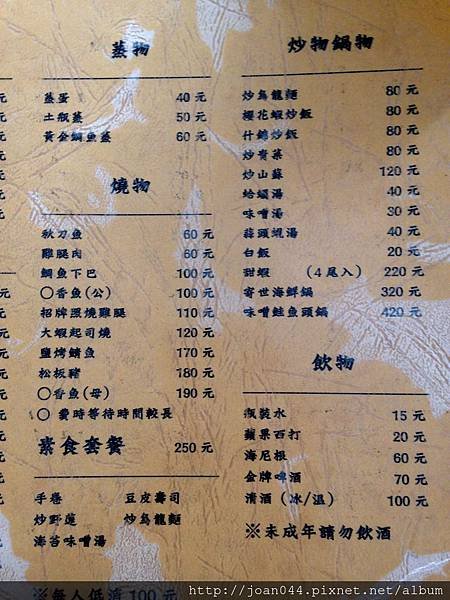 蒸物
蒸蛋 40 元
土瓶蒸 50 元
黃金鯛魚蒸 60 元
燒物
秋刀魚 60 元
雞腿肉 60 元
鯛魚下巴 100 元
○香魚(公) 100 元
招牌照燒雞腿 110 元
大蝦起司燒 120 元
鹽烤鯖魚 170 元
松板豬 180 元
○香魚(母) 190 元
○ 費時等待時間較長
素食套餐 250 元
手卷 豆皮壽司
炒野蓮 炒烏龍麵
海苔味噌湯
※每人低消 100 元
炒物鍋物
炒烏龍麵 80 元
櫻花蝦炒飯 80 元
什錦炒飯 80 元
炒青菜 80 元
炒山蘇 120 元
蛤蠣湯 40 元
味噌湯 30 元
蒜頭蜆湯 40 元
白飯 20 元
甜蝦 (4尾入) 220 元
寄世海鮮鍋 320 元
味噌鮭魚頭鍋 420 元
飲物
瓶裝水 15 元
蘋果西打 20 元
海尼根 60 元
金牌啤酒 70 元
清酒(冰/溫) 100 元
※未成年請勿飲酒
http://joan044.pixnet.net/album